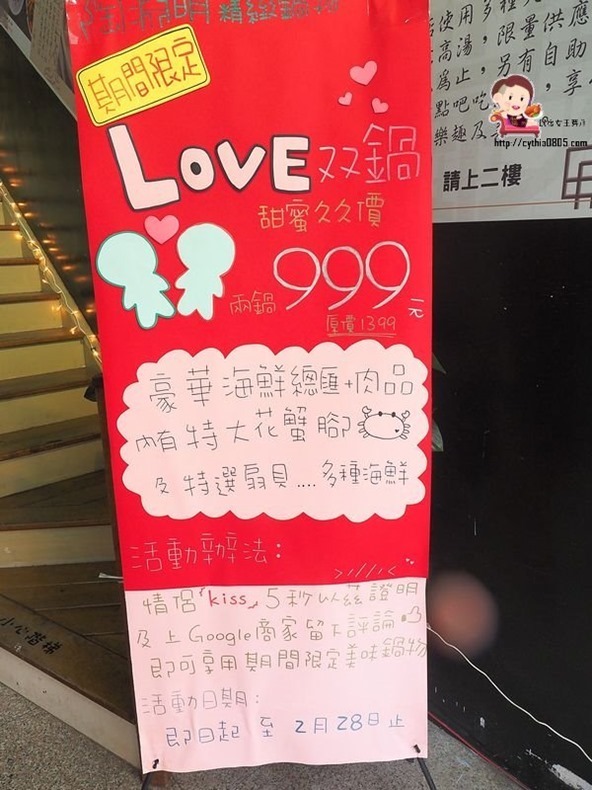 期間限定
LOVE 双鍋
甜蜜久久價
兩鍋 999元
原價1399
豪華海鮮總匯+肉品
內有特大花蟹腳
及特選扇貝....多種海鮮
活動辦法:
情侶「kiss」5秒以茲證明
及上Google商家留下評論
即可享用期間限定美味鍋物
活動日期:
即日起 至 2月28日止
使用多種
高湯,限量供應
為止,另有自助
點吧吃
樂趣及
請上二樓
http://cythia0805.com
小心階梯